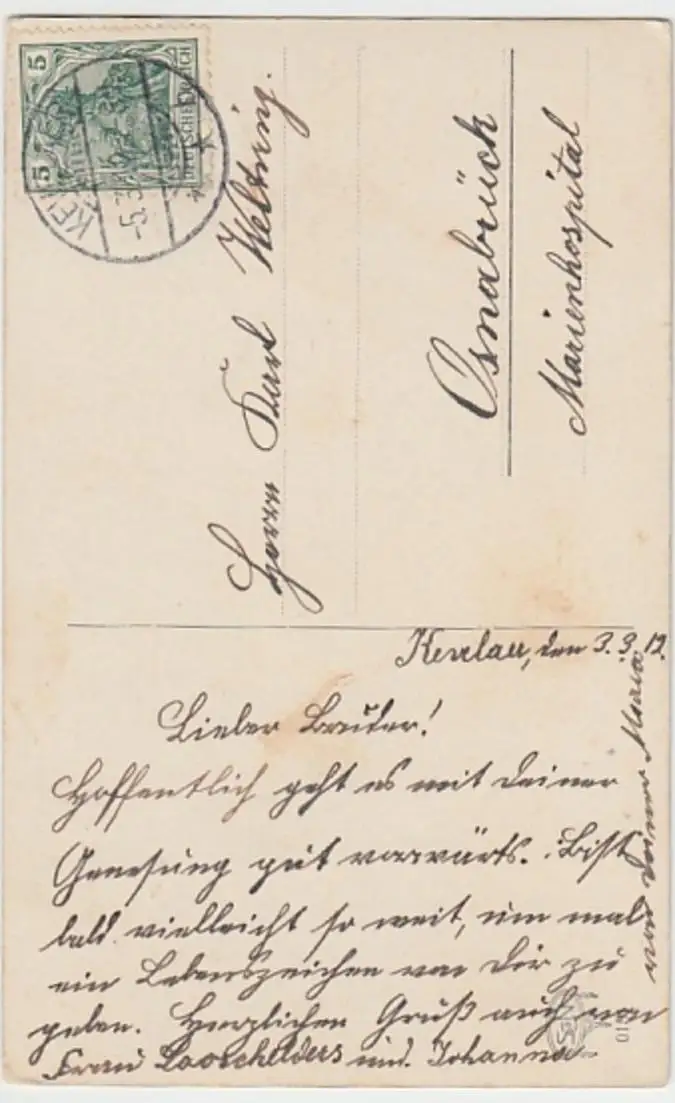 5
5
DEUTSCHES REICH
Herrn Karl Weltring.
Osnabrück
Marienhospital
Kevelaer, den 3.3.12.
Lieber Bruder!
Hoffentlich geht es mit deiner
Genesung gut vorwärts. Bist
bald vielleicht so weit, um mal
ein Lebenszeichen von Dir zu
geben. Herzlichen Gruß auch von
Frau und Johanna
von deiner Maria